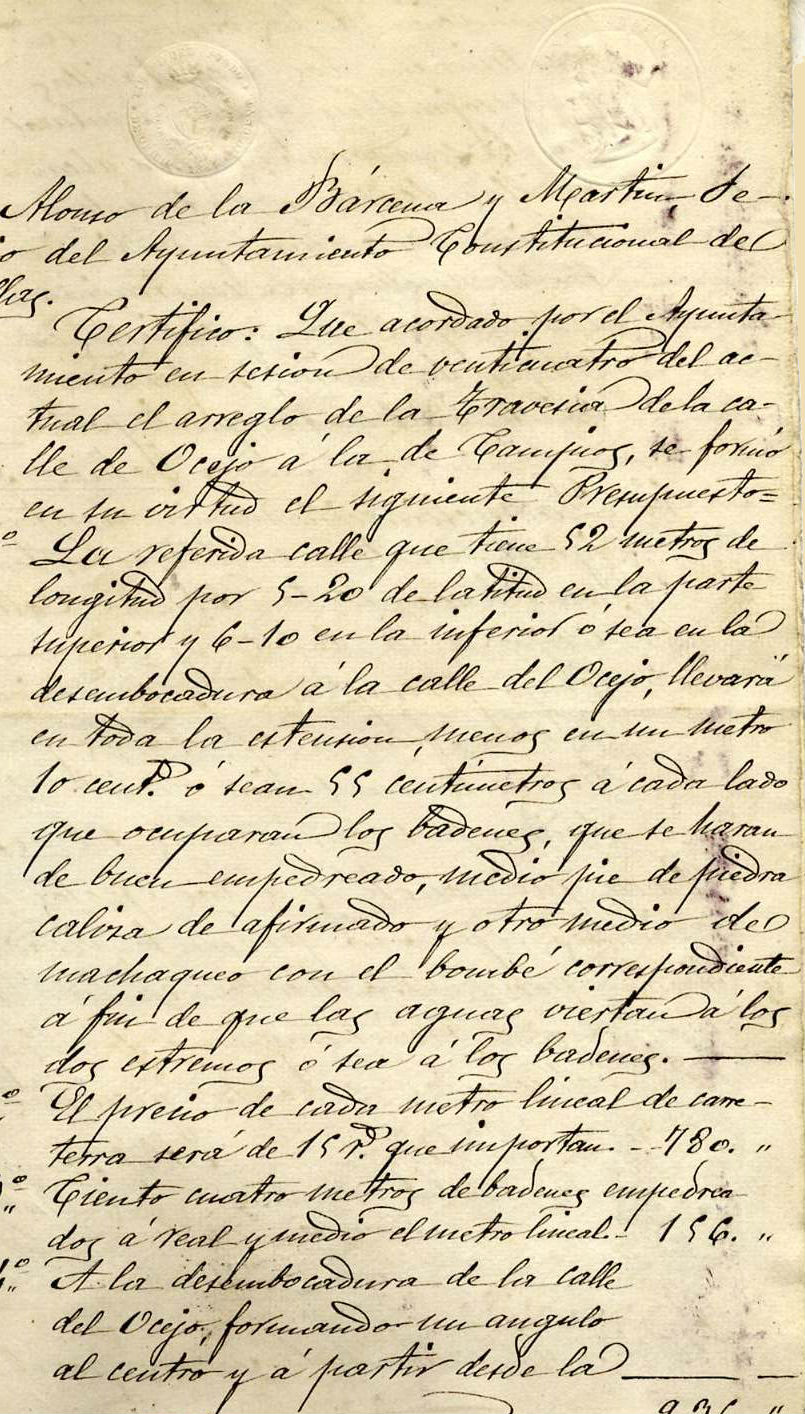 Alonso de la Bárcena y Martin Se-
io del Ayuntamiento Constitucional de
llas.
Certifico: Que acordado por el Ayunta-
miento en sesion de venticuatro del ac-
tual el arreglo de la Travesia de la ca-
lle de Ocejo á la de Campios, se formó
en su virtud el siguiente Presupuesto=
º La referida calle que tiene 52 metros de
longitud por 5-20 de latitud en la parte
superior y 6-10 en la inferior ó sea en la
desembocadura á la calle del Ocejo, llevará
en toda la estension, menos en un metro
10 centº ó sean 55 centimetros á cada lado
que ocuparan los badenes, que se haran
de buen empedreado, medio pie de piedra
caliza de afirmado y otro medio de
machaqueo con el bombé correspondiente
á fin de que las aguas viertan á los
dos estremos ó sea á los badenes.
º El precio de cada metro lineal de carre-
terra será de 15 rº que importan. - 780. "
º Ciento cuatro metros de badenes empedrea
dos á real y medio el metro lineal. - 156. "
4º A la desembocadura de la calle
del Ocejo, formando un angulo
al centro y á partir desde la
936 "